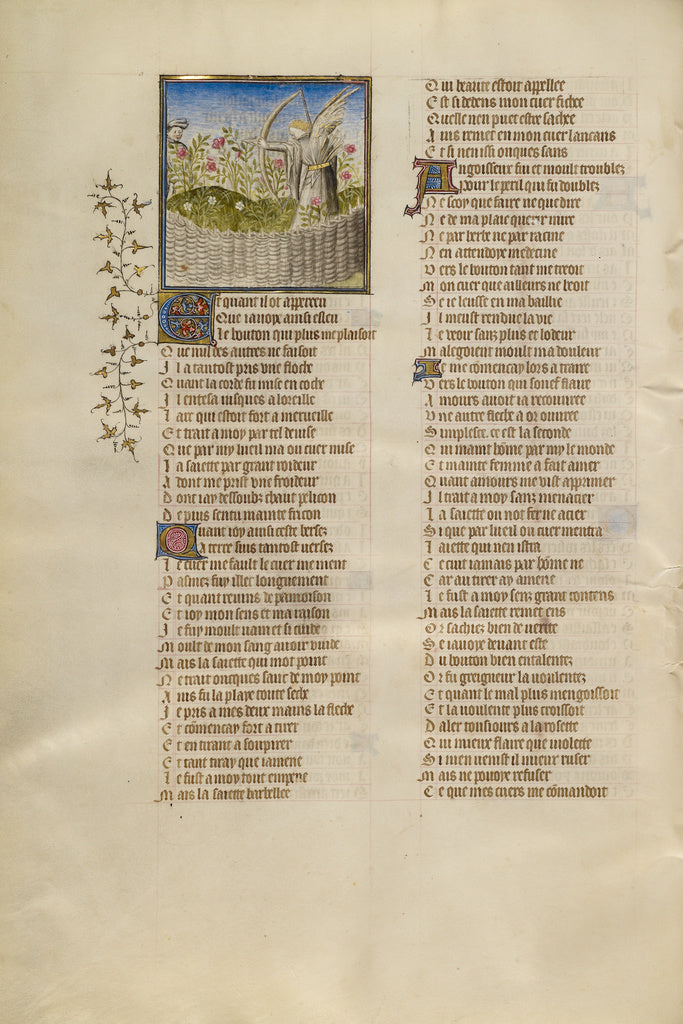 Et quant il ot apperceu
Que iauoye ainsi esleu
Le bouton qui plus me plaisoit
Que nul des autres ne faisoit
Il a tantost pris vne floche
Quant la corde fu mise en coche
Il entesa iusques a loreille
Larc qui estoit fort a merueille
Et trait a moy par tel deuise
Que par my lueil ma ou cuer mise
La saiette par grant roideur
Adont me prist vne froideur
Dont iay dessoubz chaut pelicon
Depuis sentu mainte fricon
Quant ioy ainsi este bersez
A terre fuis tantost versez
Le cuer me fault le cuer me ment
Pasmez fuy illec longuement
Et quant reuins de pamoison
Et ioy mon sens et ma raison
Je fuy moult vain et si cuide
Moult de mon sang auoir vuide
Mais la saiette qui mot point
Ne trait oncques sanc de moy point
Ains fu la playe toute seche
Je pris a mes deux mains la fleche
Et cōmencay fort a tirer
Et en tirant a soupirer
Et tant tiray que iamene
Le fust a moy tout empene
Mais la saiette barbellee
Qui beaute estoit appellee
Est si dedens mon cuer fichee
Quelle nen puet estre sachee
Ains remet en mon cuer lancans
Et si nen issi onques sans
Angoisseux fui et moult troublez
Pour le peril qui fu doublez
Ne scoy que faire ne que dire
Ne de ma plaie querir mire
Ne par herbe ne par racine
Nen attendoye medecine
Vers le bouton tant me treoit
Mon cuer que ailleurs ne beoit
Se ie leusse en ma baillie
Il meust rendue la vie
Le veoir sanz plus et lodeur
Malegoient moult ma douleur
Je me cōmencay lors a traire
Vers le bouton qui souef flaire
Amours auoit ia recouuree
Vne autre fleche a or ouuree
Simplesce ce est la seconde
Qui maint hōme par my le monde
Et mainte femme a fait amer
Quant amours me vist apprimer
Il trait a moy sanz menacier
La saiette ou not fer ne acier
Si que par lueil ou cuer mentra
Laiette qui nen istra
Ce cuit iamais par hōme ne
Car au tirer ay amene
Le fust a moy senz grant contens
Mais la saiette remet ens
Or sachiez bien de verite
Se iauoye deuant este
Du bouton bien entalentez
Or fu greigneur la voulentez
Et quant le mal plus mengoissoit
Et la voulente plus croissoit
Daler tousiours a la rosette
Qui mieux flaire que violette
Si men venist il mieux ruser
Mais ne pouoye refuser
Ce que mes cuers me cōmandoit